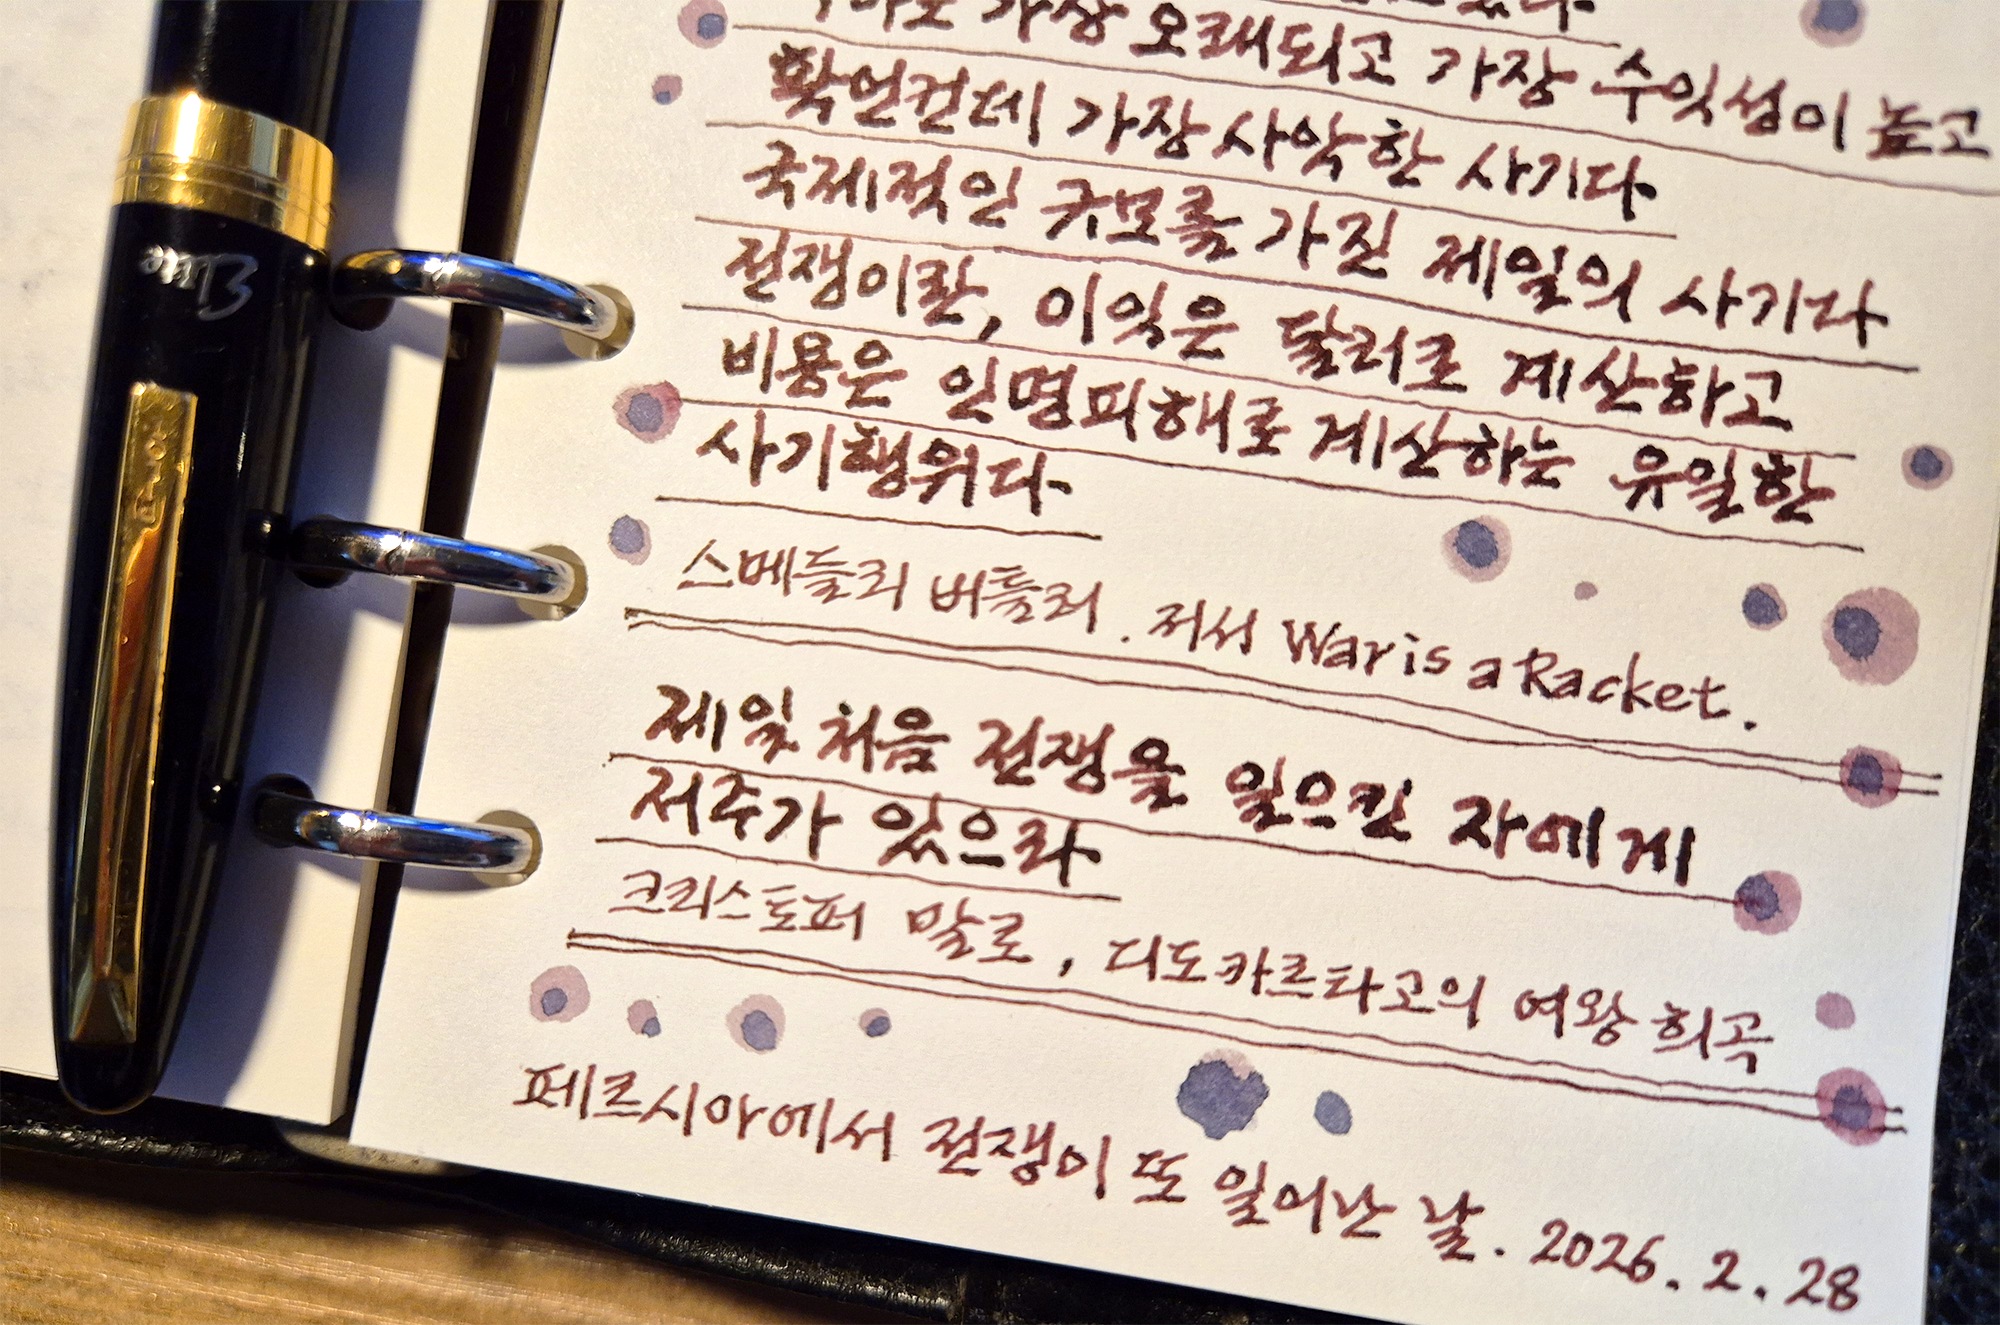 가장 오래되고 가장 수익성이 높고
확언컨데 가장 사악한 사기다.
국제적인 규모를 가진 제일의 사기다
전쟁이란, 이익은 달러로 계산하고
비용은 인명피해로 계산하는 유일한
사기행위다.
스메들리 버틀러. 저서 War is a Racket.
제일 처음 전쟁을 일으킨 자에게
저주가 있으라.
크리스토퍼 말로, 디도카르타고의 여왕 희곡
페르시아에서 전쟁이 또 일어난 날. 2026. 2. 28
Elite